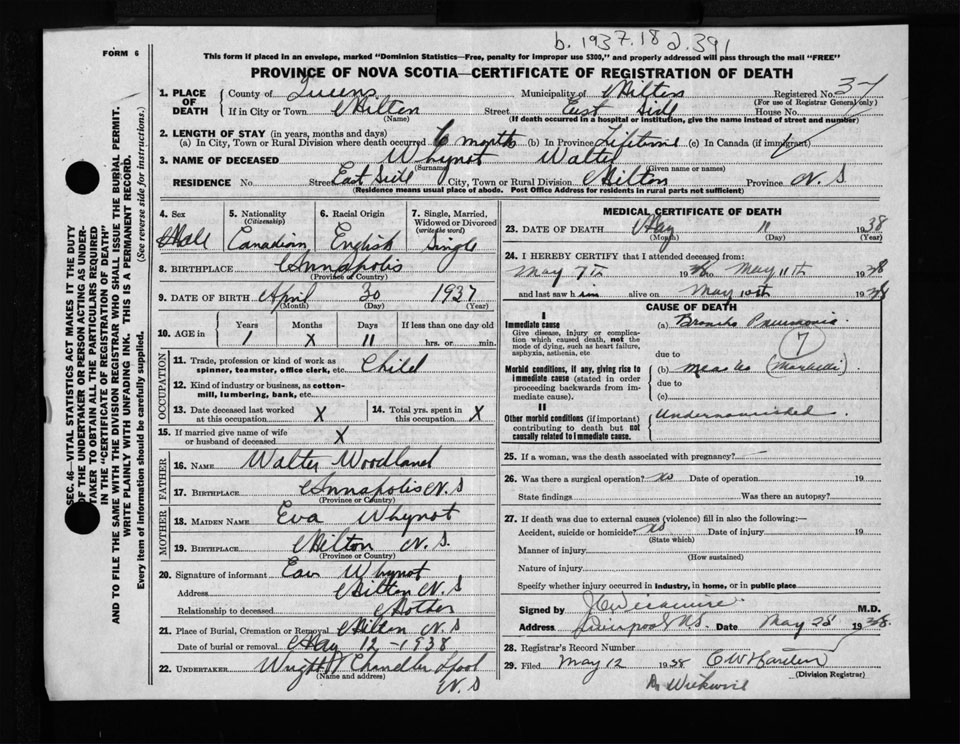 b. 1937.18 2.391
FORM 6
This form if placed in an envelope, marked "Dominion Statistics—Free, penalty for improper use $300," and properly addressed will pass through the mail "FREE"
PROVINCE OF NOVA SCOTIA—CERTIFICATE OF REGISTRATION OF DEATH
SEC. 46—VITAL STATISTICS ACT MAKES IT THE DUTY
OF THE UNDERTAKER OR PERSON ACTING AS UNDER-
TAKER TO OBTAIN ALL THE PARTICULARS REQUIRED
IN THE "CERTIFICATE OF REGISTRATION OF DEATH"
AND TO FILE THE SAME WITH THE DIVISION REGISTRAR WHO SHALL ISSUE THE BURIAL PERMIT.
WRITE PLAINLY WITH UNFADING INK. THIS IS A PERMANENT RECORD.
Every item of information should be carefully supplied. (See reverse side for instructions.)
1. PLACE OF DEATH
County of Queens Municipality of Milton Registered No. 37
(For use of Registrar General only)
If in City or Town Milton Street East Side House No.
(Name) (If death occurred in a hospital or institution, give the name instead of street and number)
2. LENGTH OF STAY (in years, months and days)
(a) In City, Town or Rural Division where death occurred 6 months (b) In Province Lifetime (c) In Canada (if immigrant)
3. NAME OF DECEASED Whynot Walter
(Surname) (Given name or names)
RESIDENCE No. Street East Side City, Town or Rural Division Milton Province N.S
(Residence means usual place of abode. Post Office Address for residents in rural parts not sufficient)
4. Sex Male
5. Nationality (Citizenship) Canadian
6. Racial Origin English
7. Single, Married, Widowed or Divorced (write the word) Single
8. BIRTHPLACE Annapolis
(Province or Country)
9. DATE OF BIRTH April 30 1937
(Month) (Day) (Year)
10. AGE in Years Months Days If less than one day old
1 X 11 hrs. or min.
OCCUPATION
11. Trade, profession or kind of work as spinner, teamster, office clerk, etc. Child
12. Kind of industry or business, as cotton-mill, lumbering, bank, etc.
13. Date deceased last worked at this occupation X
14. Total yrs. spent in this occupation X
15. If married give name of wife or husband of deceased X
FATHER
16. NAME Walter Woodland
17. BIRTHPLACE Annapolis N.S
(Province or Country)
MOTHER
18. MAIDEN NAME Eva Whynot
19. BIRTHPLACE Milton N.S.
(Province or Country)
20. Signature of informant Eva Whynot
Address Milton N.S
Relationship to deceased Mother
21. Place of Burial, Cremation or Removal Milton N.S
Date of burial or removal May 12 - 1938
22. UNDERTAKER Wright Chandler Lpool
(Name and address) N.S
MEDICAL CERTIFICATE OF DEATH
23. DATE OF DEATH May 11 1938
(Month) (Day) (Year)
24. I HEREBY CERTIFY that I attended deceased from:
May 7th 1938 to May 11th 1938
and last saw h im alive on May 10th 1938
CAUSE OF DEATH
I
Immediate cause (a) Broncho Pneumonia
Give disease, injury or complication which caused death, not the mode of dying, such as heart failure, asphyxia, asthenia, etc
7
due to
Morbid conditions, if any, giving rise to immediate cause (stated in order proceeding backwards from immediate cause).
(b) measles (Morbilli)
due to
(c)
II
Other morbid conditions (if important) contributing to death but not causally related to immediate cause.
Undernourished
25. If a woman, was the death associated with pregnancy?
26. Was there a surgical operation? no Date of operation 19
State findings Was there an autopsy?
27. If death was due to external causes (violence) fill in also the following:—
Accident, suicide or homicide? no Date of injury 19
(State which)
Manner of injury
(How sustained)
Nature of injury
Specify whether injury occurred in industry, in home, or in public place
Signed by M.D.
Address Liverpool N.S. Date May 28 1938
28. Registrar's Record Number
29. Filed May 12 1938
(Division Registrar)